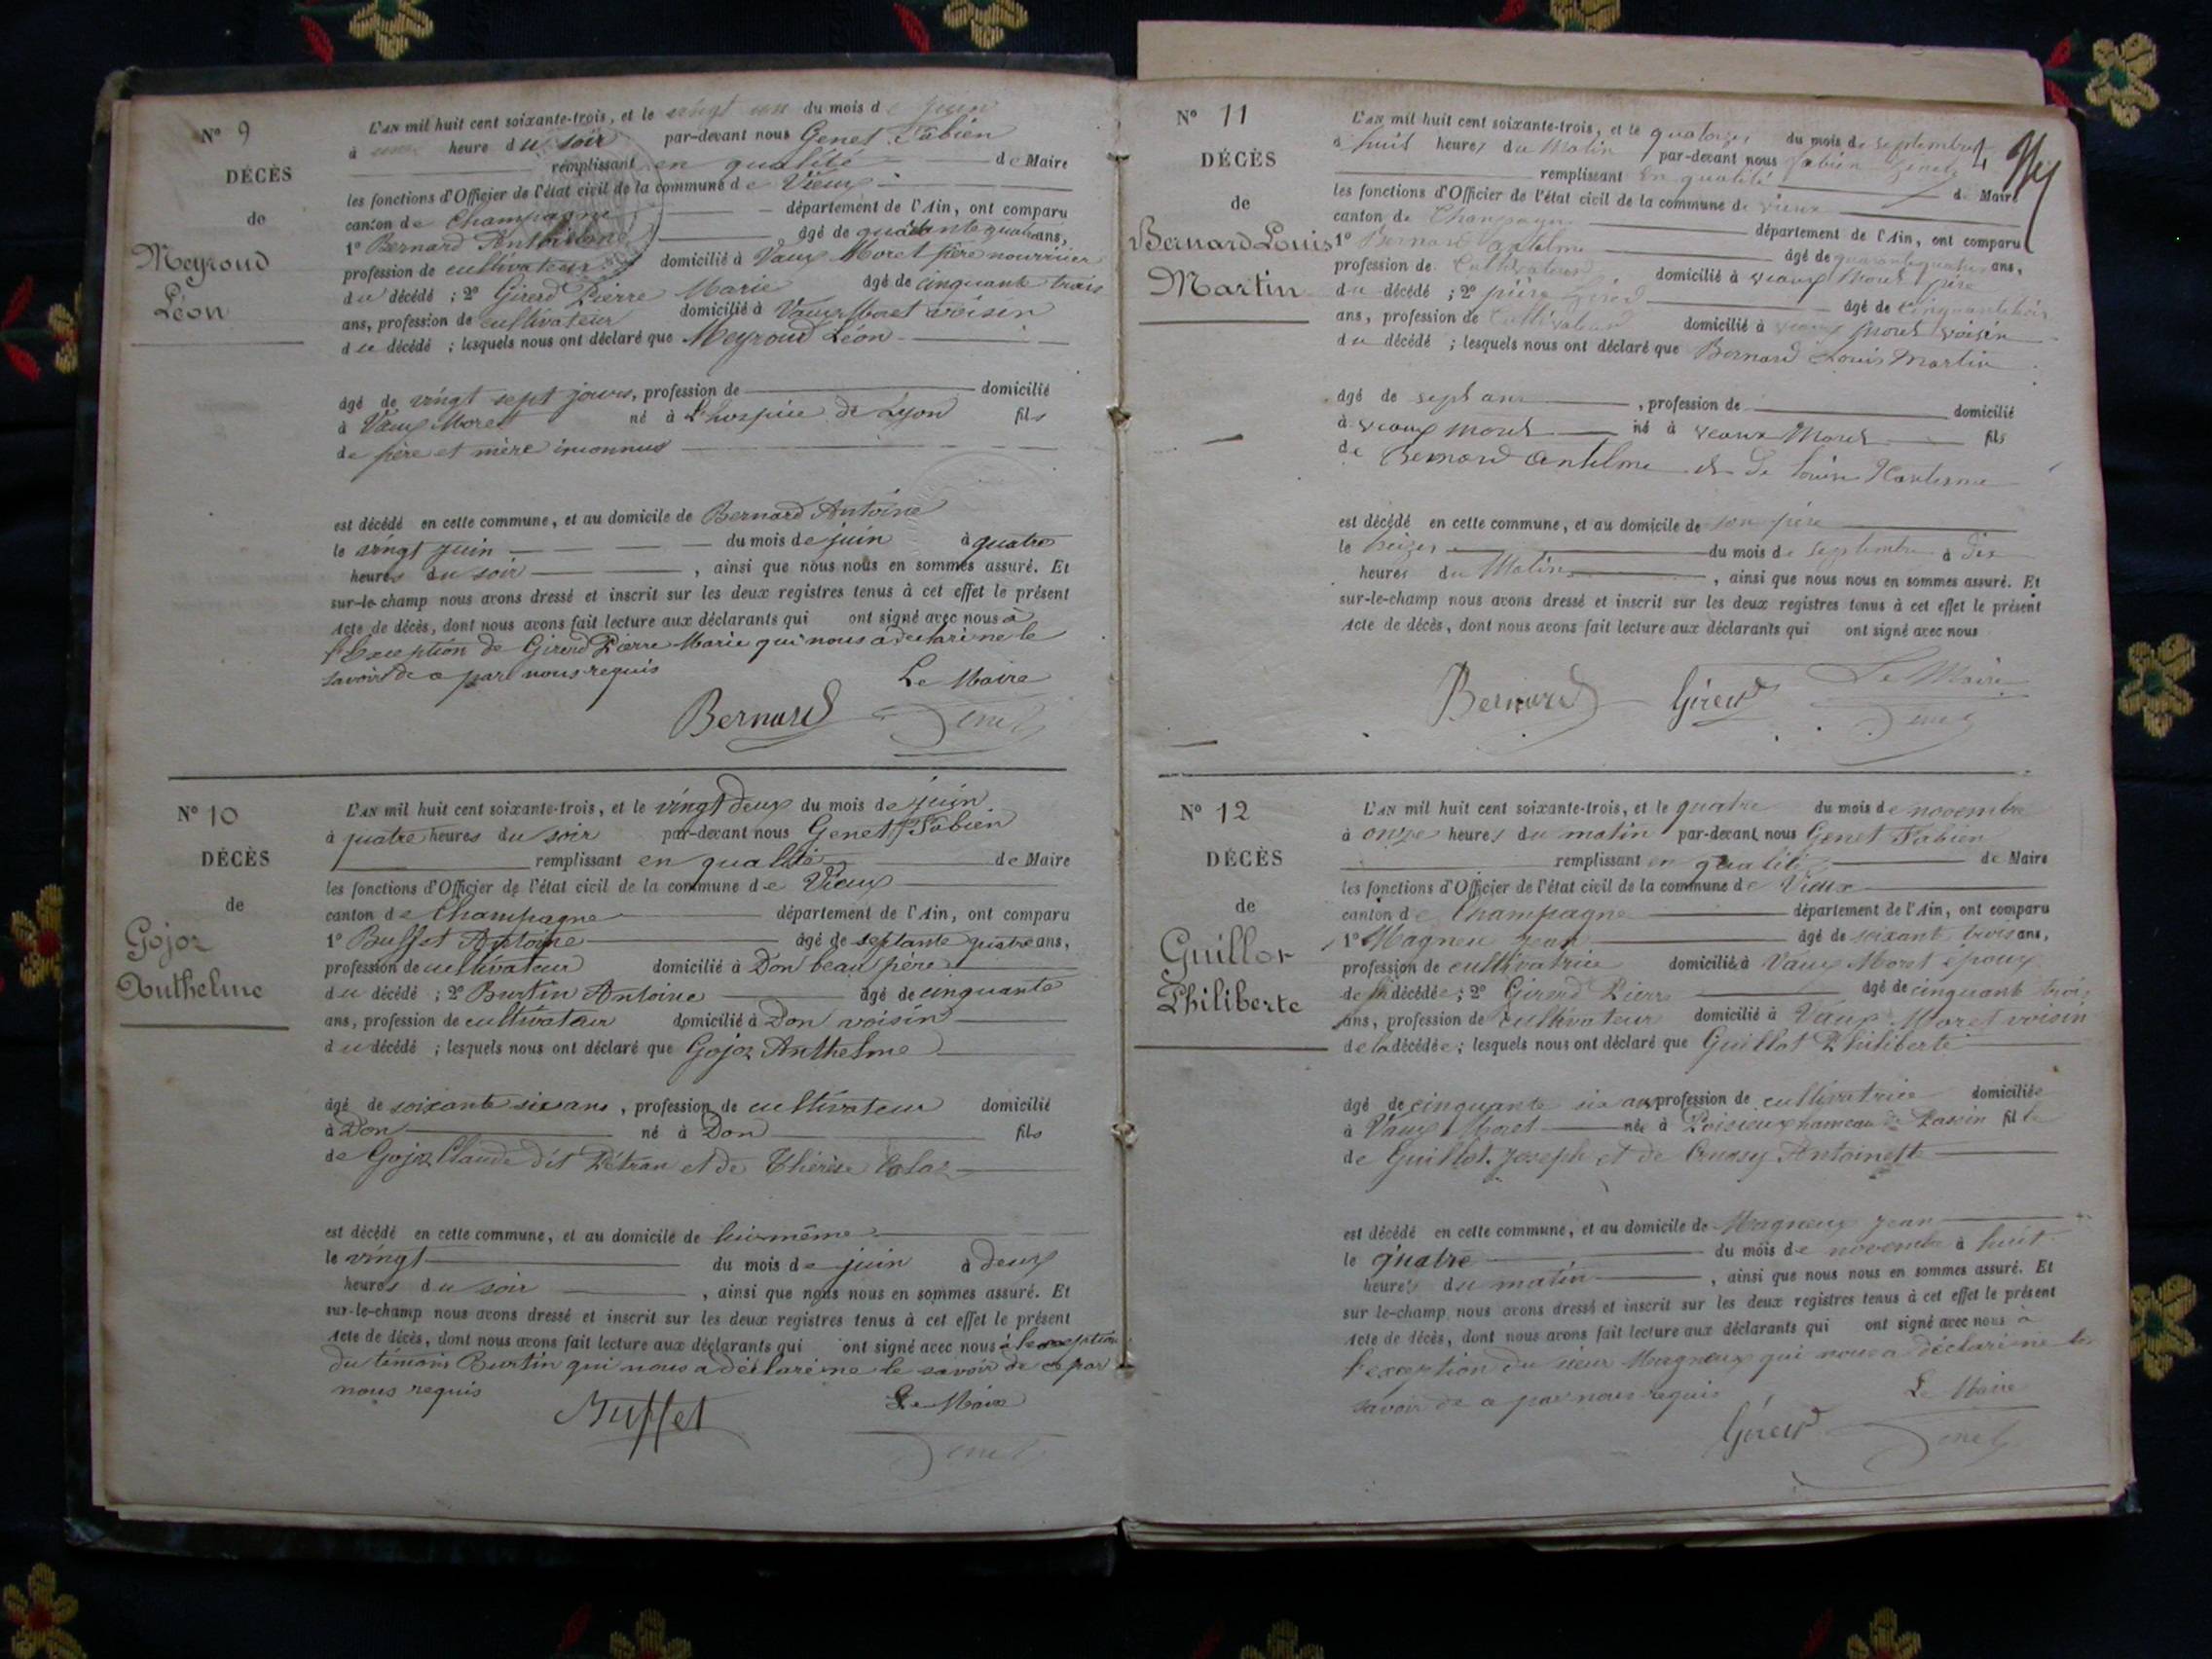 N° 9
DÉCÈS
de
Meyroud
Léon
L'AN mil huit cent soixante-trois, et le vingt un du mois de juin
à une heure du soir par-devant nous Genet Fabien
remplissant en qualité de Maire
les fonctions d'Officier de l'état civil de la commune de Vieux
canton de Champagne département de l'Ain, ont comparu
1° Bernard Antoine âgé de quarante quatre ans,
profession de cultivateur domicilié à Vaux Moret père nourricier
du décédé ; 2° Girerd Pierre Marie âgé de cinquante trois
ans, profession de cultivateur domicilié à Vaux Moret voisin
du décédé ; lesquels nous ont déclaré que Meyroud Léon
âgé de vingt sept jours, profession de domicilié
à Vaux Moret né à L'hospice de Lyon fils
de père et mère inconnus
est décédé en cette commune, et au domicile de Bernard Antoine
le vingt juin du mois de juin à quatre
heures du soir , ainsi que nous nous en sommes assuré. Et
sur-le-champ nous avons dressé et inscrit sur les deux registres tenus à cet effet le présent
Acte de décès, dont nous avons fait lecture aux déclarants qui ont signé avec nous à
l'Exception de Girerd Pierre Marie qui nous a déclaré ne le
savoir de ce par nous requis
Le Maire
Bernard Genet
N° 10
DÉCÈS
de
Gojoz
Anthelme
L'AN mil huit cent soixante-trois, et le vingt deux du mois de juin
à quatre heures du soir par-devant nous Genet Fabien
remplissant en qualité de Maire
les fonctions d'Officier de l'état civil de la commune de Vieux
canton de Champagne département de l'Ain, ont comparu
1° Buffet Antoine âgé de septante quatre ans,
profession de cultivateur domicilié à Don beau père
du décédé ; 2° Burtin Antoine âgé de cinquante
ans, profession de cultivateur domicilié à Don voisin
du décédé ; lesquels nous ont déclaré que Gojoz Anthelme
âgé de soixante six ans , profession de cultivateur domicilié
à Don né à Don fils
de Gojoz Claude dit Pétran et de Thérèse
est décédé en cette commune, et au domicile de lui même
le vingt du mois de juin à deux
heures du soir , ainsi que nous nous en sommes assuré. Et
sur-le-champ nous avons dressé et inscrit sur les deux registres tenus à cet effet le présent
Acte de décès, dont nous avons fait lecture aux déclarants qui ont signé avec nous à l'exception
du témoin Burtin qui nous a déclaré ne le savoir de ce par
nous requis
Le Maire
Buffet Genet
N° 11
DÉCÈS
de
Bernard Louis
Martin
L'AN mil huit cent soixante-trois, et le quatorze du mois de septembre
à huit heures du Matin par-devant nous fabien Genet
remplissant en qualité de Maire
les fonctions d'Officier de l'état civil de la commune de vieux
canton de Champagne département de l'Ain, ont comparu
1° Bernard antelme âgé de quarante quatre ans,
profession de Cultivateur domicilié à veaux Moret père
du décédé ; 2° pière Girerd âgé de Cinquante trois
ans, profession de Cultivateur domicilié à veaux Moret voisin
du décédé ; lesquels nous ont déclaré que Bernard Louis Martin
âgé de sept ans , profession de domicilié
à veaux moret né à veaux Moret fils
de Bernard antelme et de louise
est décédé en cette commune, et au domicile de son père
le treizes du mois de septembre à dix
heures du Matin , ainsi que nous nous en sommes assuré. Et
sur-le-champ nous avons dressé et inscrit sur les deux registres tenus à cet effet le présent
Acte de décès, dont nous avons fait lecture aux déclarants qui ont signé avec nous
Le Maire
Bernard Girerd Genet
N° 12
DÉCÈS
de
Guillot
Philiberte
L'AN mil huit cent soixante-trois, et le quatre du mois de novembre
à onze heures du matin par-devant nous Genet Fabien
remplissant en qualité de Maire
les fonctions d'Officier de l'état civil de la commune de Vieux
canton de Champagne département de l'Ain, ont comparu
1° Magneu Jean âgé de soixant trois ans,
profession de cultivatrice domicilié à Vaux Moret époux
de la décédée ; 2° Girerd Pierre âgé de cinquante trois
ans, profession de cultivateur domicilié à Vaux Moret voisin
de la décédée ; lesquels nous ont déclaré que Guillot Philiberte
âgé de cinquante six ans profession de cultivatrice domiciliée
à Vaux Moret née à Poisieux hameau de fille
de Guillot Joseph et de Antoinette
est décédé en cette commune, et au domicile de Magneux Jean
le quatre du mois de novembre à huit
heures du matin , ainsi que nous nous en sommes assuré. Et
sur le-champ nous avons dressé et inscrit sur les deux registres tenus à cet effet le présent
Acte de décès, dont nous avons fait lecture aux déclarants qui ont signé avec nous à
l'exception du sieur Magneux qui nous a déclaré ne le
savoir de ce par nous requis
Le Maire
Girerd Genet